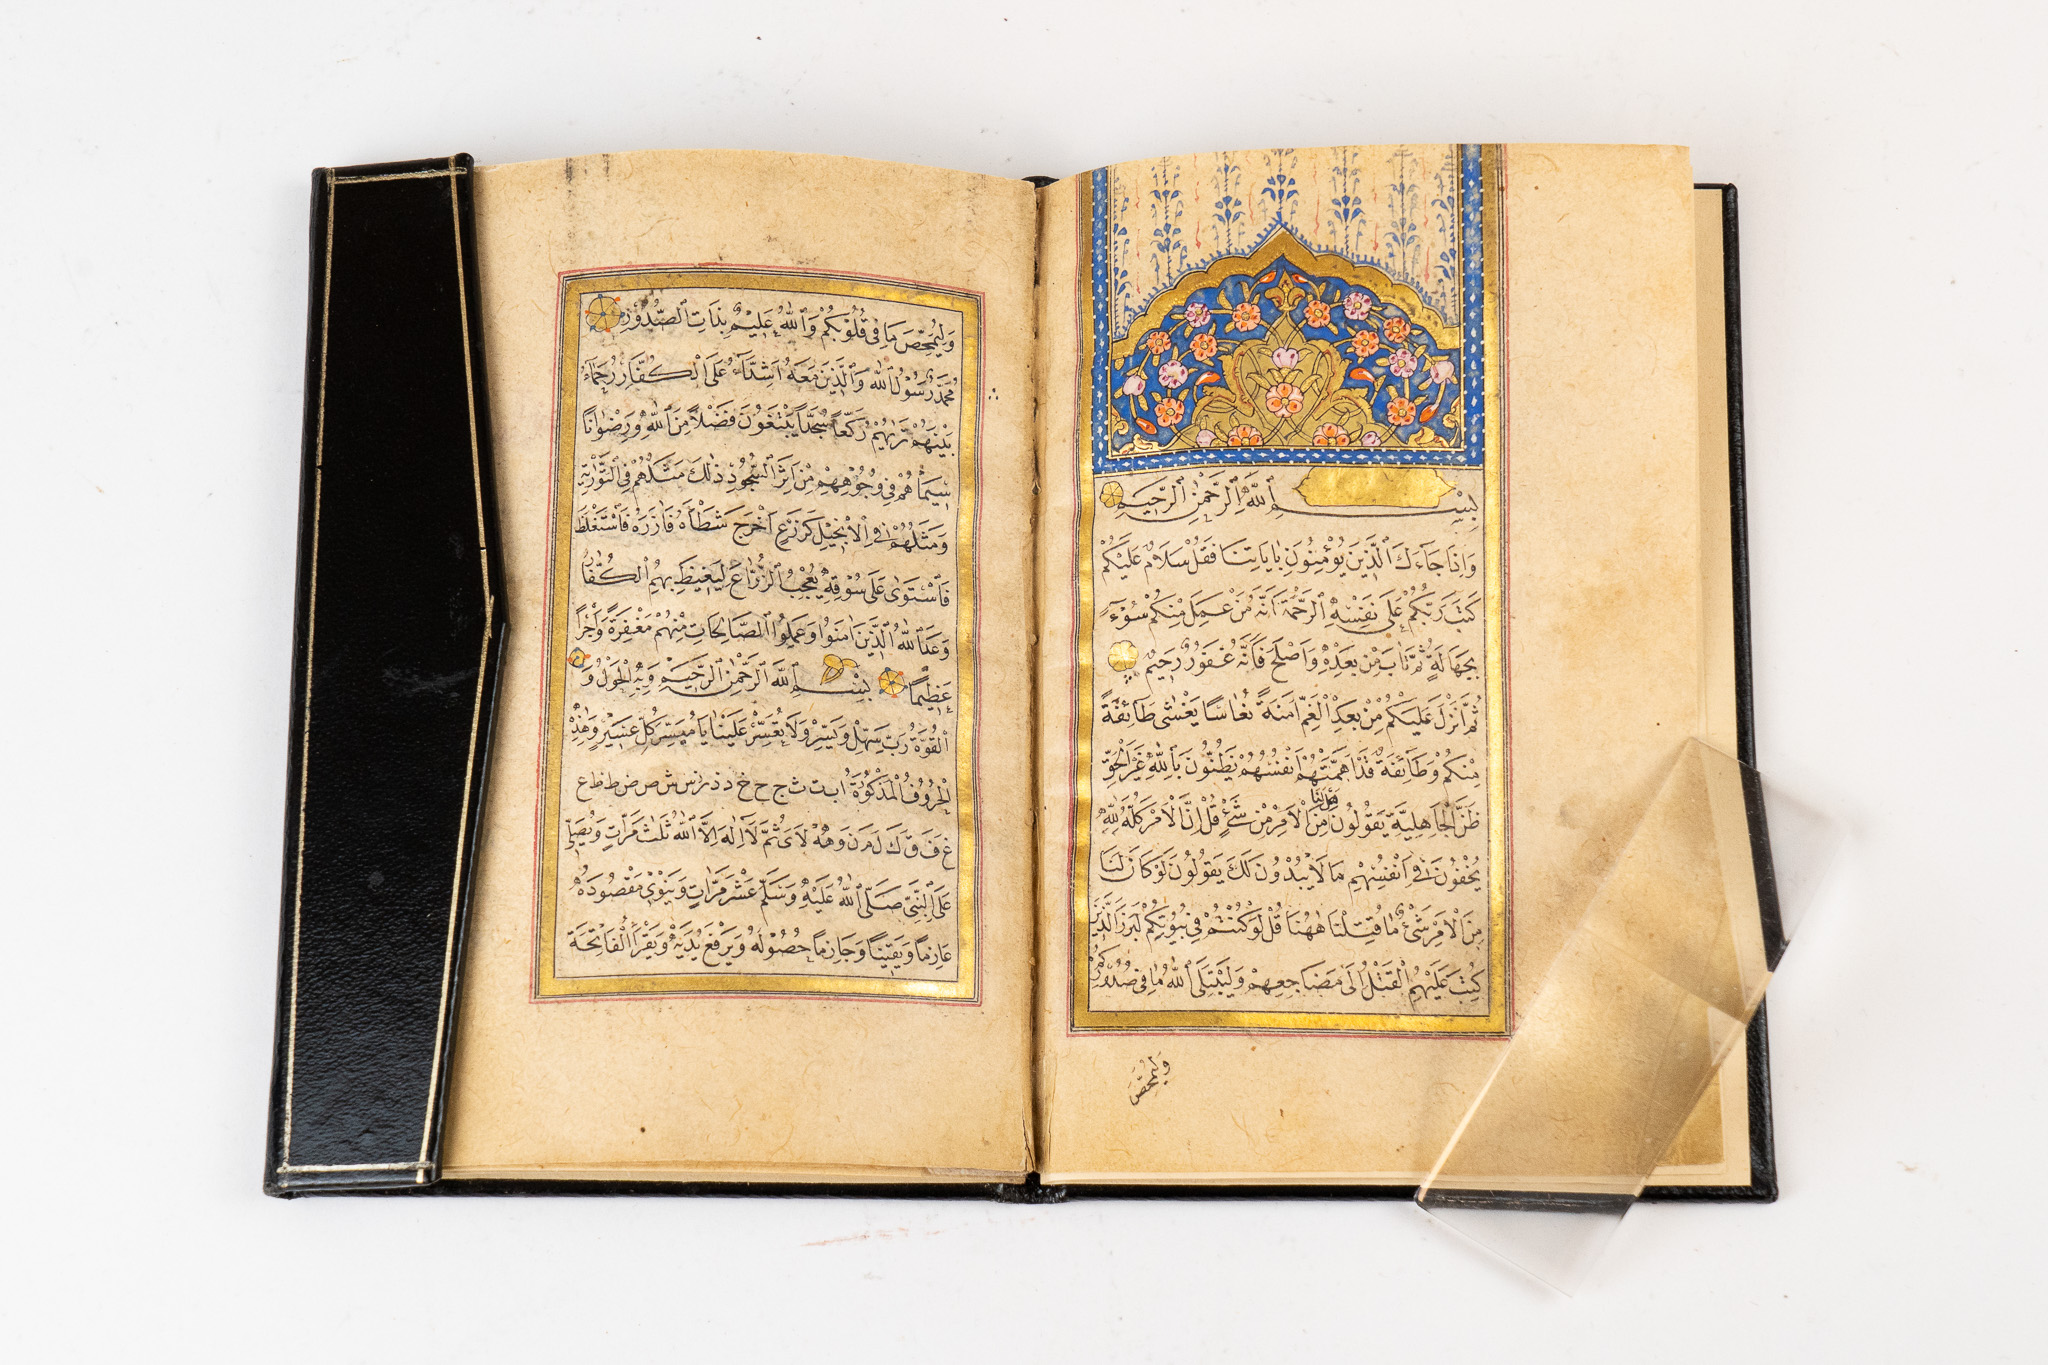 بِسْمِ اللّٰهِ الرَّحْمٰنِ الرَّحِيمِ
وَاِذَا جَآءَكَ الَّذِينَ يُؤْمِنُونَ بِاٰيَاتِنَا فَقُلْ سَلَامٌ عَلَيْكُمْ
كَتَبَ رَبُّكُمْ عَلٰى نَفْسِهِ الرَّحْمَةَ اَنَّهُ مَنْ عَمِلَ مِنْكُمْ سُوٓءً
بِجَهَالَةٍ ثُمَّ تَابَ مِنْ بَعْدِهِ وَاَصْلَحَ فَاَنَّهُ غَفُورٌ رَحِيمٌ
ثُمَّ اَنْزَلَ عَلَيْكُمْ مِنْ بَعْدِ الْغَمِّ اَمَنَةً نُعَاسًا يَغْشٰى طَآئِفَةً
مِنْكُمْ وَطَآئِفَةٌ قَدْ اَهَمَّتْهُمْ اَنْفُسُهُمْ يَظُنُّونَ بِاللّٰهِ غَيْرَ الْحَقِّ
ظَنَّ الْجَاهِلِيَّةِ يَقُولُونَ هَلْ لَنَا مِنَ الْاَمْرِ مِنْ شَيْءٍ قُلْ اِنَّ الْاَمْرَ كُلَّهُ لِلّٰهِ
يُخْفُونَ فِٓي اَنْفُسِهِمْ مَا لَا يُبْدُونَ لَكَ يَقُولُونَ لَوْ كَانَ لَنَا
مِنَ الْاَمْرِ شَيْءٌ مَا قُتِلْنَا هٰهُنَا قُلْ لَوْ كُنْتُمْ فِي بُيُوتِكُمْ لَبَرَزَ الَّذِينَ
كُتِبَ عَلَيْهِمُ الْقَتْلُ اِلٰى مَضَاجِعِهِمْ وَلِيَبْتَلِيَ اللّٰهُ مَا فِي صُدُورِكُمْ
وَلِيُمَحِّصَ
وَلِيُمَحِّصَ مَا فِي قُلُوبِكُمْ وَاللّٰهُ عَلِيمٌ بِذَاتِ الصُّدُورِ
مُحَمَّدٌ رَسُولُ اللّٰهِ وَالَّذِينَ مَعَهُ اَشِدَّآءُ عَلَى الْكُفَّارِ رُحَمَآءُ
بَيْنَهُمْ تَرٰيهُمْ رُكَّعًا سُجَّدًا يَبْتَغُونَ فَضْلًا مِنَ اللّٰهِ وَرِضْوَانًا
سِيمَاهُمْ فِي وُجُوهِهِمْ مِنْ اَثَرِ السُّجُودِ ذٰلِكَ مَثَلُهُمْ فِي التَّوْرٰيةِ
وَمَثَلُهُمْ فِي الْاِنْجِيلِ كَزَرْعٍ اَخْرَجَ شَطْأَهُ فَاٰزَرَهُ فَاسْتَغْلَظَ
فَاسْتَوٰى عَلٰى سُوقِهِ يُعْجِبُ الزُّرَّاعَ لِيَغِيظَ بِهِمُ الْكُفَّارَ
وَعَدَ اللّٰهُ الَّذِينَ اٰمَنُوا وَعَمِلُوا الصَّالِحَاتِ مِنْهُمْ مَغْفِرَةً وَاَجْرًا
عَظِيمًا بِسْمِ اللّٰهِ الرَّحْمٰنِ الرَّحِيمِ وَبِهِ الْحَوْلُ وَ
الْقُوَّةُ رَبِّ سَهِّلْ وَيَسِّرْ وَلَا تُعَسِّرْ عَلَيْنَا يَا مُيَسِّرَ كُلِّ عَسِيرٍ وَهٰذِهِ
الْحُرُوفُ الْمَذْكُورَةُ ا ب ت ث ج ح خ د ذ ر ز س ش ص ض ط ظ ع
غ ف ق ك ل م ن و ه لا ى ثُمَّ لَا اِلٰهَ اِلَّا اللّٰهُ ثَلٰثَ مَرَّاتٍ وَيُصَلِّي
عَلَى النَّبِيِّ صَلَّى اللّٰهُ عَلَيْهِ وَسَلَّمَ عَشْرَ مَرَّاتٍ وَيَنْوِي مَقْصُودَهُ
عَازِمًا وَيَقِينًا وَجَازِمًا حُصُولَهُ وَيَرْفَعُ يَدَيْهِ وَيَقْرَأُ الْفَاتِحَةَ